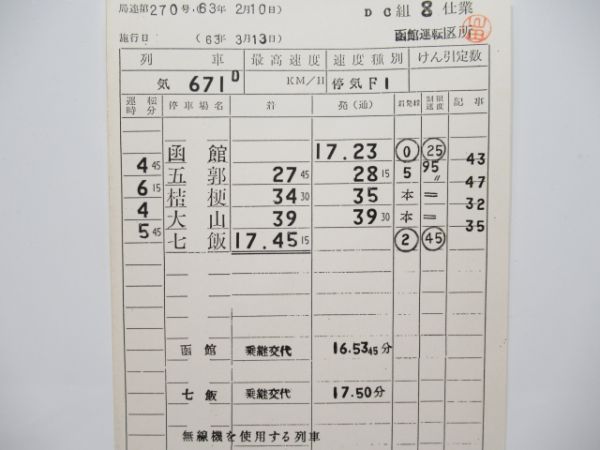 局達第270号(63年 2月10日) DC組 8 仕業
施行日 (63年 3月13日) 函館運転区所
列車 最高速度 速度種別 けん引定数
気 671D KM/H 停気F1
運転時分 停車場名 着 発(通) 着発線 制限速度 記事
函館 17.23 0 25
4 45 43
五郭 27 45 28 15 5 95〃
6 15 47
桔梗 34 30 35 本 =
4 32
大山 39 39 30 本 =
5 45 35
七飯 17.45 15 2 45
函館 乗継交代 16.53 45分
七飯 乗継交代 17.50分
無線機を使用する列車